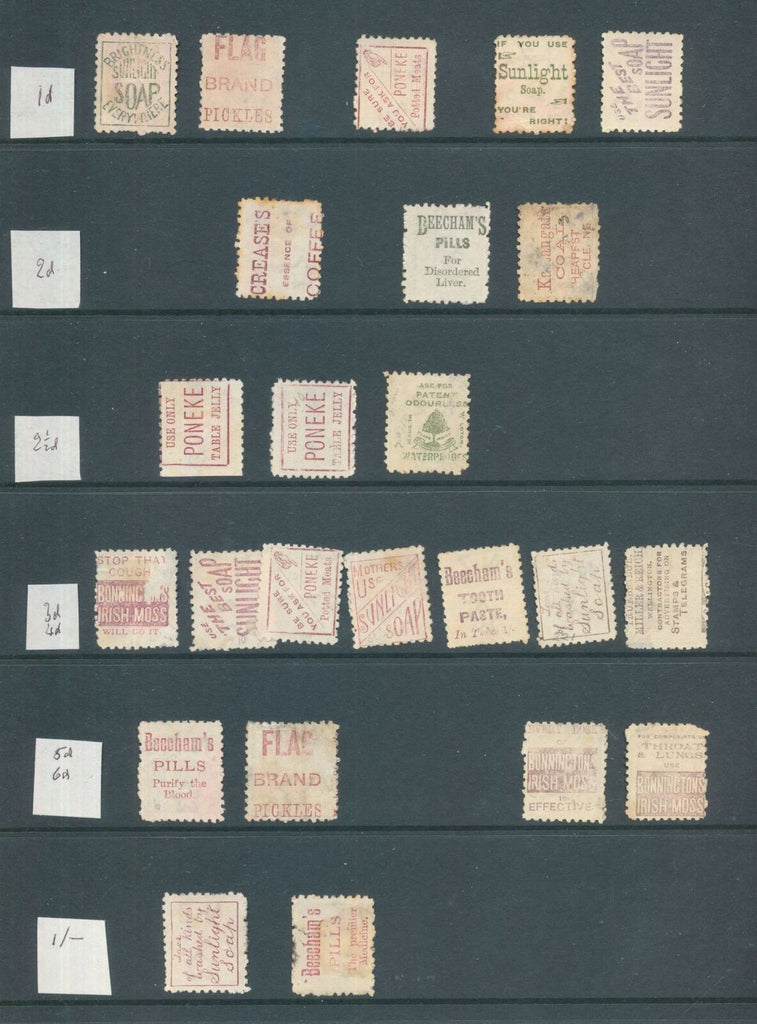 1d
BRIGHTNESS
SUNLIGHT
SOAP
EVERYWHERE
FLAG
BRAND
PICKLES
BE SURE
YOU ASK FOR
PONEKE
Potted Meats
IF YOU USE
Sunlight
Soap.
YOU'RE
RIGHT!
USE
THE BEST
SOAP
SUNLIGHT
2d
CREASE'S
ESSENCE OF
COFFEE
BEECHAM'S
PILLS
For
Disordered
Liver.
COAL
2½d
USE ONLY
PONEKE
TABLE JELLY
USE ONLY
PONEKE
TABLE JELLY
ASK FOR
PATENT
ODOURLESS
WATERPROOFS
3d
4d
STOP THAT
COUGH
BONNINGTON'S
IRISH MOSS
WILL DO IT
USE
THE BEST
SOAP
SUNLIGHT
BE SURE
YOU ASK FOR
PONEKE
Potted Meats
MOTHERS
USE
SUNLIGHT
SOAP
Beecham's
TOOTH
PASTE,
In Tubes 1/-
of all kinds
washed by
Sunlight
Soap
MILLER & REICH
WELLINGTON.
CONTRACTORS FOR
ADVERTISING ON
STAMPS &
TELEGRAMS.
5d
6d
Beecham's
PILLS
Purify the
Blood.
FLAG
BRAND
PICKLES
EVERY DOSE
OF
BONNINGTON'S
IRISH MOSS
IS
EFFECTIVE
FOR COMPLAINTS OF
THROAT
& LUNGS
USE
BONNINGTON'S
IRISH MOSS
1/-
Lace
of all kinds
washed by
Sunlight
Soap
Beecham's
PILLS
The premier
Medicine.